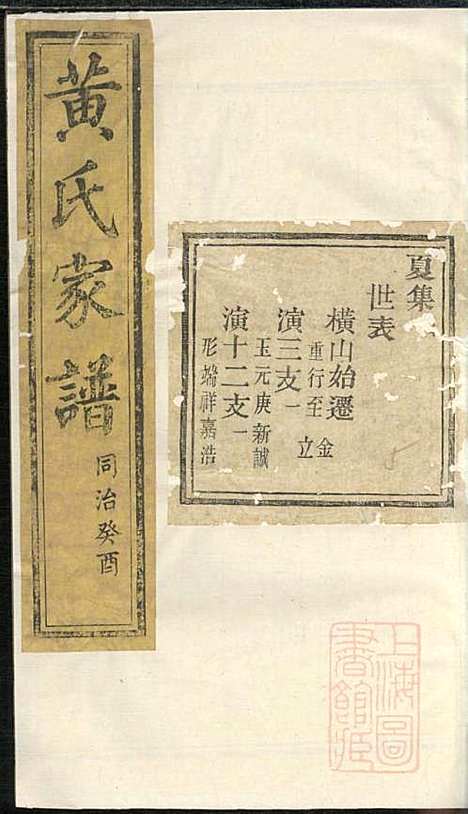 夏集
世表
橫山始遷
重行至金
演三支一立
玉元庚新誠
演十二支一
形端祥嘉浩
黃氏家譜
同治癸酉
上海圖
書館藏